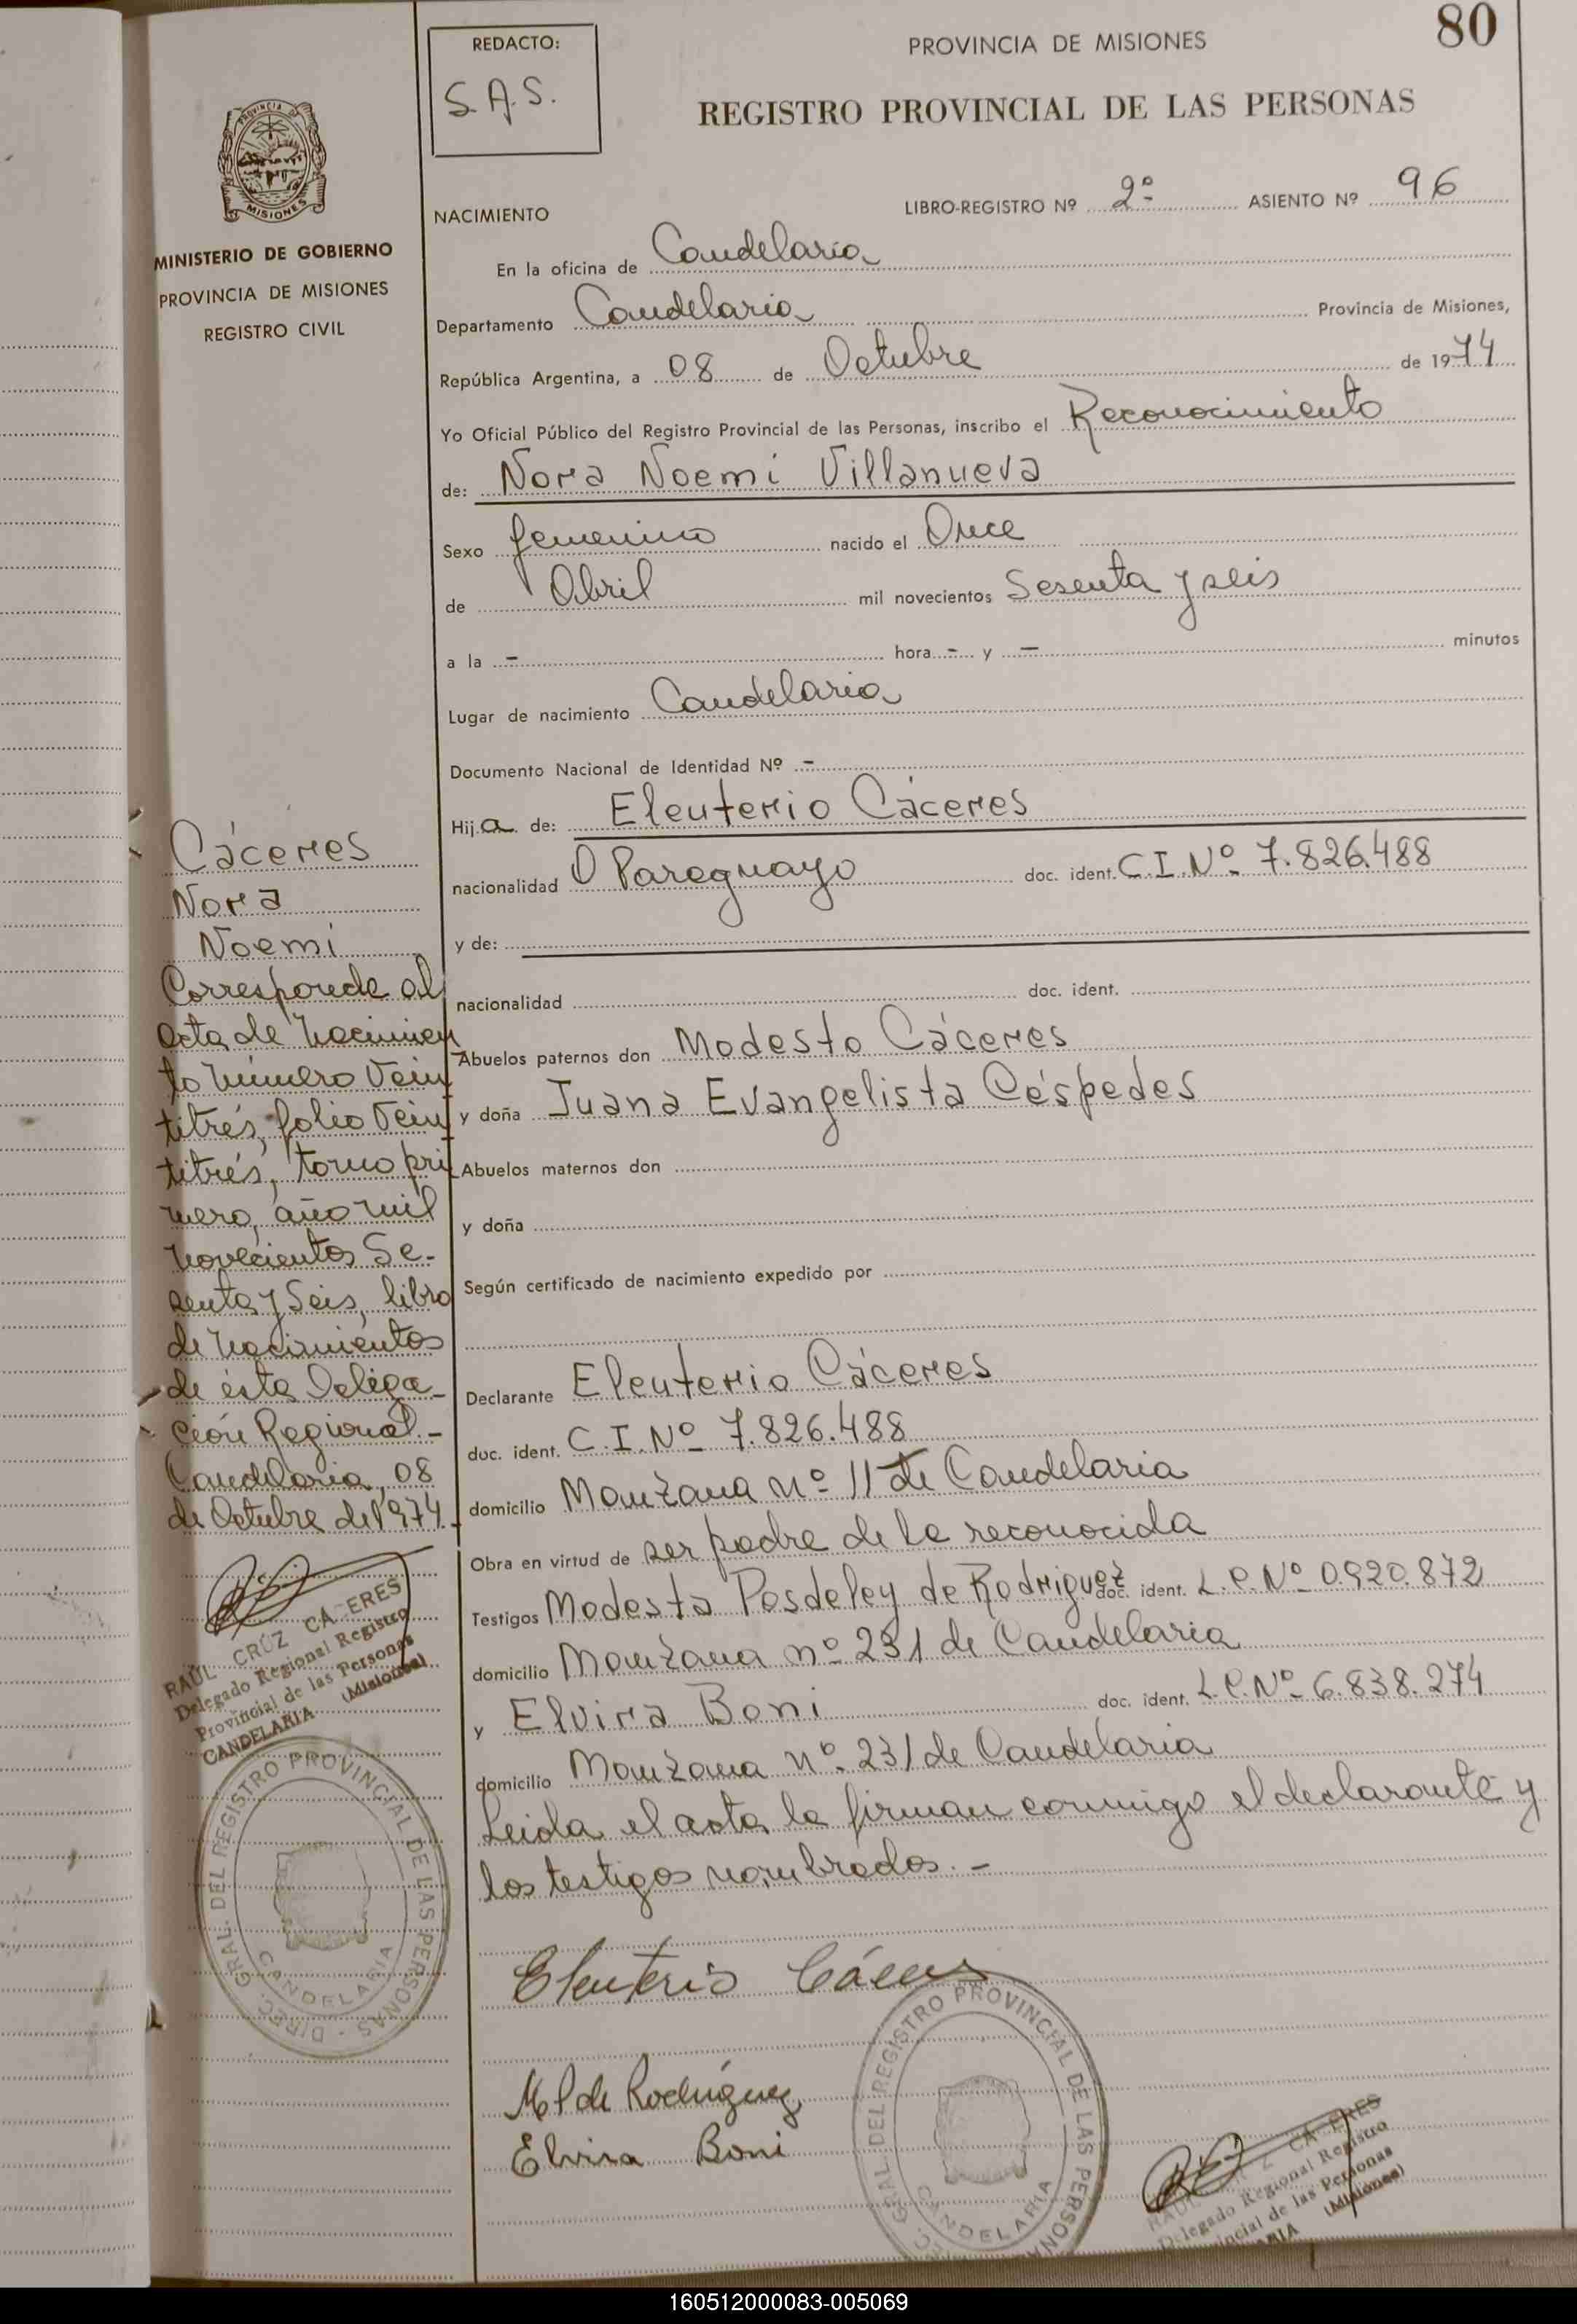 80
REDACTO:
S.A.S.
PROVINCIA DE MISIONES
REGISTRO PROVINCIAL DE LAS PERSONAS
PROVINCIA DE
MISIONES
MINISTERIO DE GOBIERNO
PROVINCIA DE MISIONES
REGISTRO CIVIL
NACIMIENTO
LIBRO-REGISTRO Nº 2º ASIENTO Nº 96
En la oficina de Candelaria
Departamento Candelaria Provincia de Misiones,
República Argentina, a 08 de Octubre de 1974
Yo Oficial Público del Registro Provincial de las Personas, inscribo el Reconocimiento
de: Nora Noemí Villanueva
Sexo femenino nacido el Once
de Abril mil novecientos Sesenta y seis
a la - hora - y - minutos
Lugar de nacimiento Candelaria
Documento Nacional de Identidad Nº -
Hija de: Eleuterio Cáceres
nacionalidad Paraguayo doc. ident. C.I.Nº 7.826.488
y de:
nacionalidad doc. ident.
Abuelos paternos don Modesto Cáceres
y doña Juana Evangelista Céspedes
Abuelos maternos don
y doña
Según certificado de nacimiento expedido por
Declarante Eleuterio Cáceres
doc. ident. C.I.Nº 7.826.488
domicilio Manzana nº 11 de Candelaria
Obra en virtud de ser padre de la reconocida
Testigos Modesta Posdeley de Rodriguez doc. ident. L.C.Nº 0.920.872
domicilio Manzana nº 231 de Candelaria
y Elvira Boni doc. ident. L.C.Nº 6.838.274
domicilio Manzana nº 231 de Candelaria
Leida el acta la firman conmigo el declarante y
los testigos nombrados.-
Eleuterio Cáceres
M P de Rodríguez
Elvira Boni
Cáceres
Nora
Noemí
Corresponde al
acta de nacimien
to número Vein
titrés, folio Vein
titrés, tomo pri
mero, año mil
novecientos Se-
senta y Seis, libro
de nacimientos
de ésta Delega-
ción Regional.-
Candelaria, 08
de Octubre de 1974.-
RAUL CRUZ CACERES
Delegado Regional Registro
Provincial de las Personas
CANDELARIA (Misiones)
DIREC. GRAL. DEL REGISTRO PROVINCIAL DE LAS PERSONAS
CANDELARIA
GRAL. DEL REGISTRO PROVINCIAL DE LAS PERSONA
CANDELARIA
CACERES
Delegado Regional Registro
incial de las Personas
ARIA (Misiones)
160512000083-005069